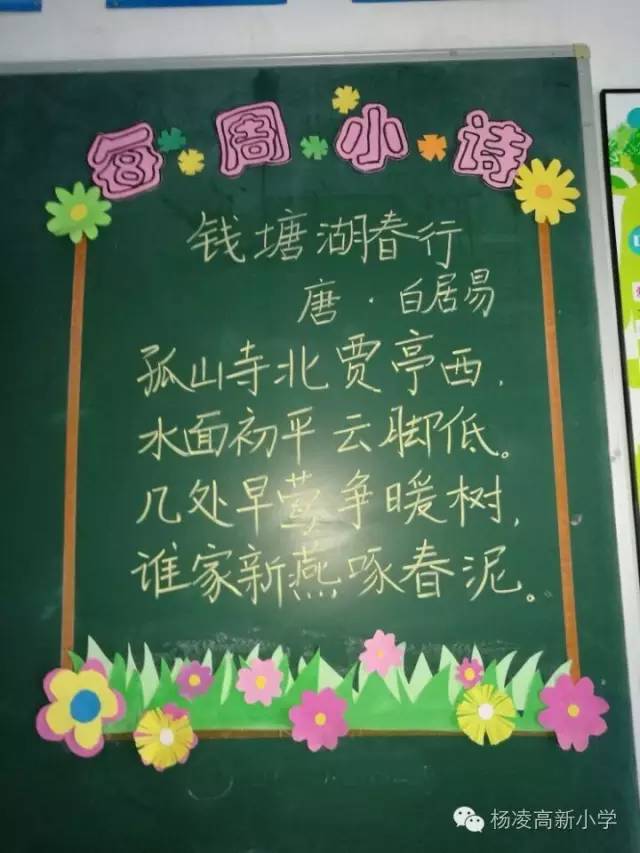 每周小诗
钱塘湖春行
唐·白居易
孤山寺北贾亭西,
水面初平云脚低。
几处早莺争暖树,
谁家新燕啄春泥。
杨凌高新小学